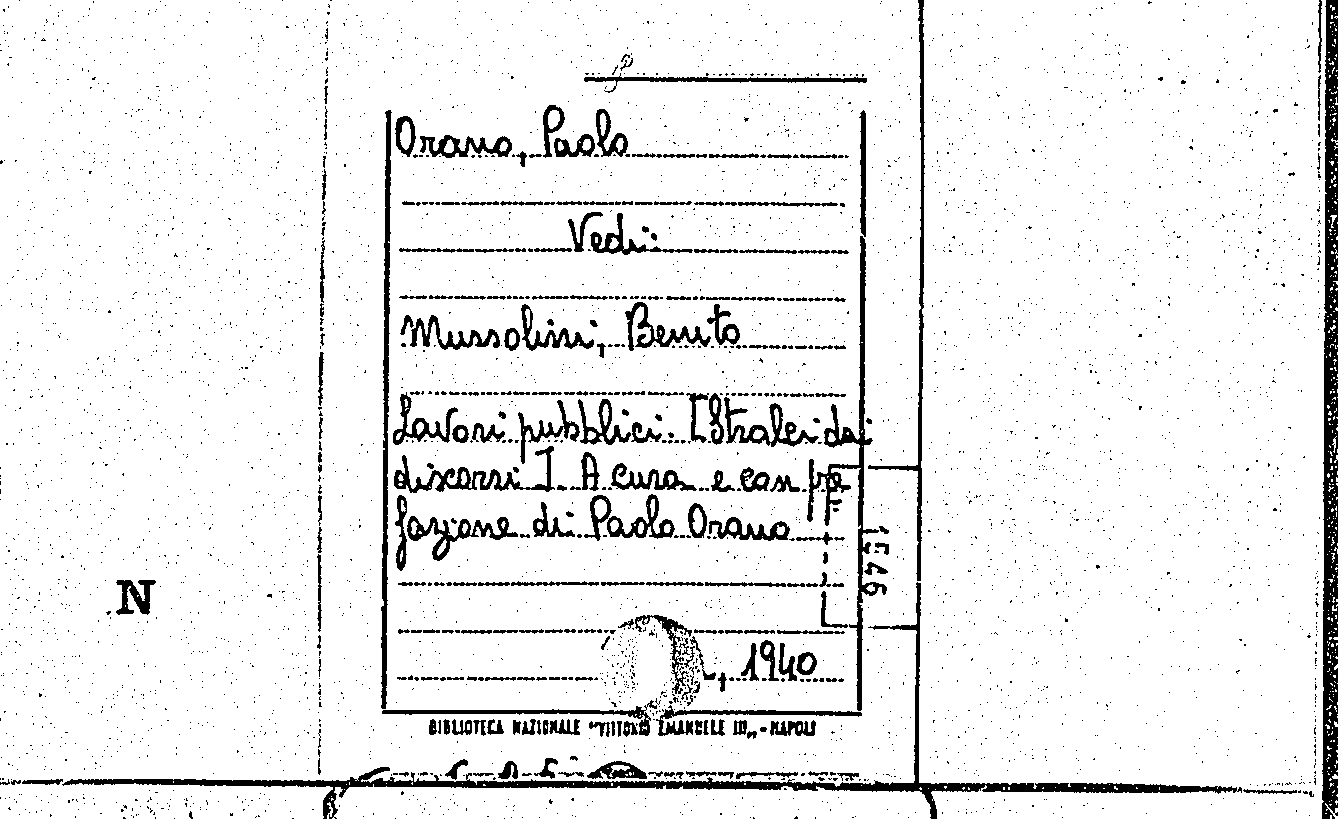 Orano, Paolo
Vedi:
Mussolini, Benito
Lavori pubblici. [Stralci dai
discorsi]. A cura e con pre
fazione di Paolo Orano
, 1940
1546
BIBLIOTECA NAZIONALE "VITTORIO EMANUELE III„ - NAPOLI
N